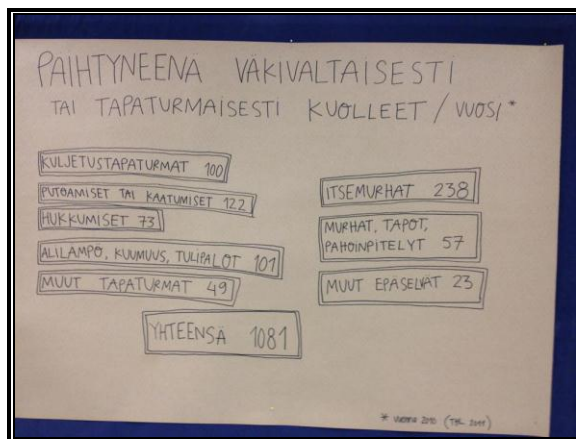 PÄIHTYNEENÄ VÄKIVALTAISESTI
TAI TAPATURMAISESTI KUOLLEET / VUOSI *
KULJETUSTAPATURMAT 100
PUTOAMISET TAI KAATUMISET 122
HUKKUMISET 73
ALILÄMPÖ, KUUMUUS, TULIPALOT 101
MUUT TAPATURMAT 49
ITSEMURHAT 238
MURHAT, TAPOT,
PAHOINPITELYT 57
MUUT EPÄSELVÄT 23
YHTEENSÄ 1081
* vuonna 2010 (THL 2011)